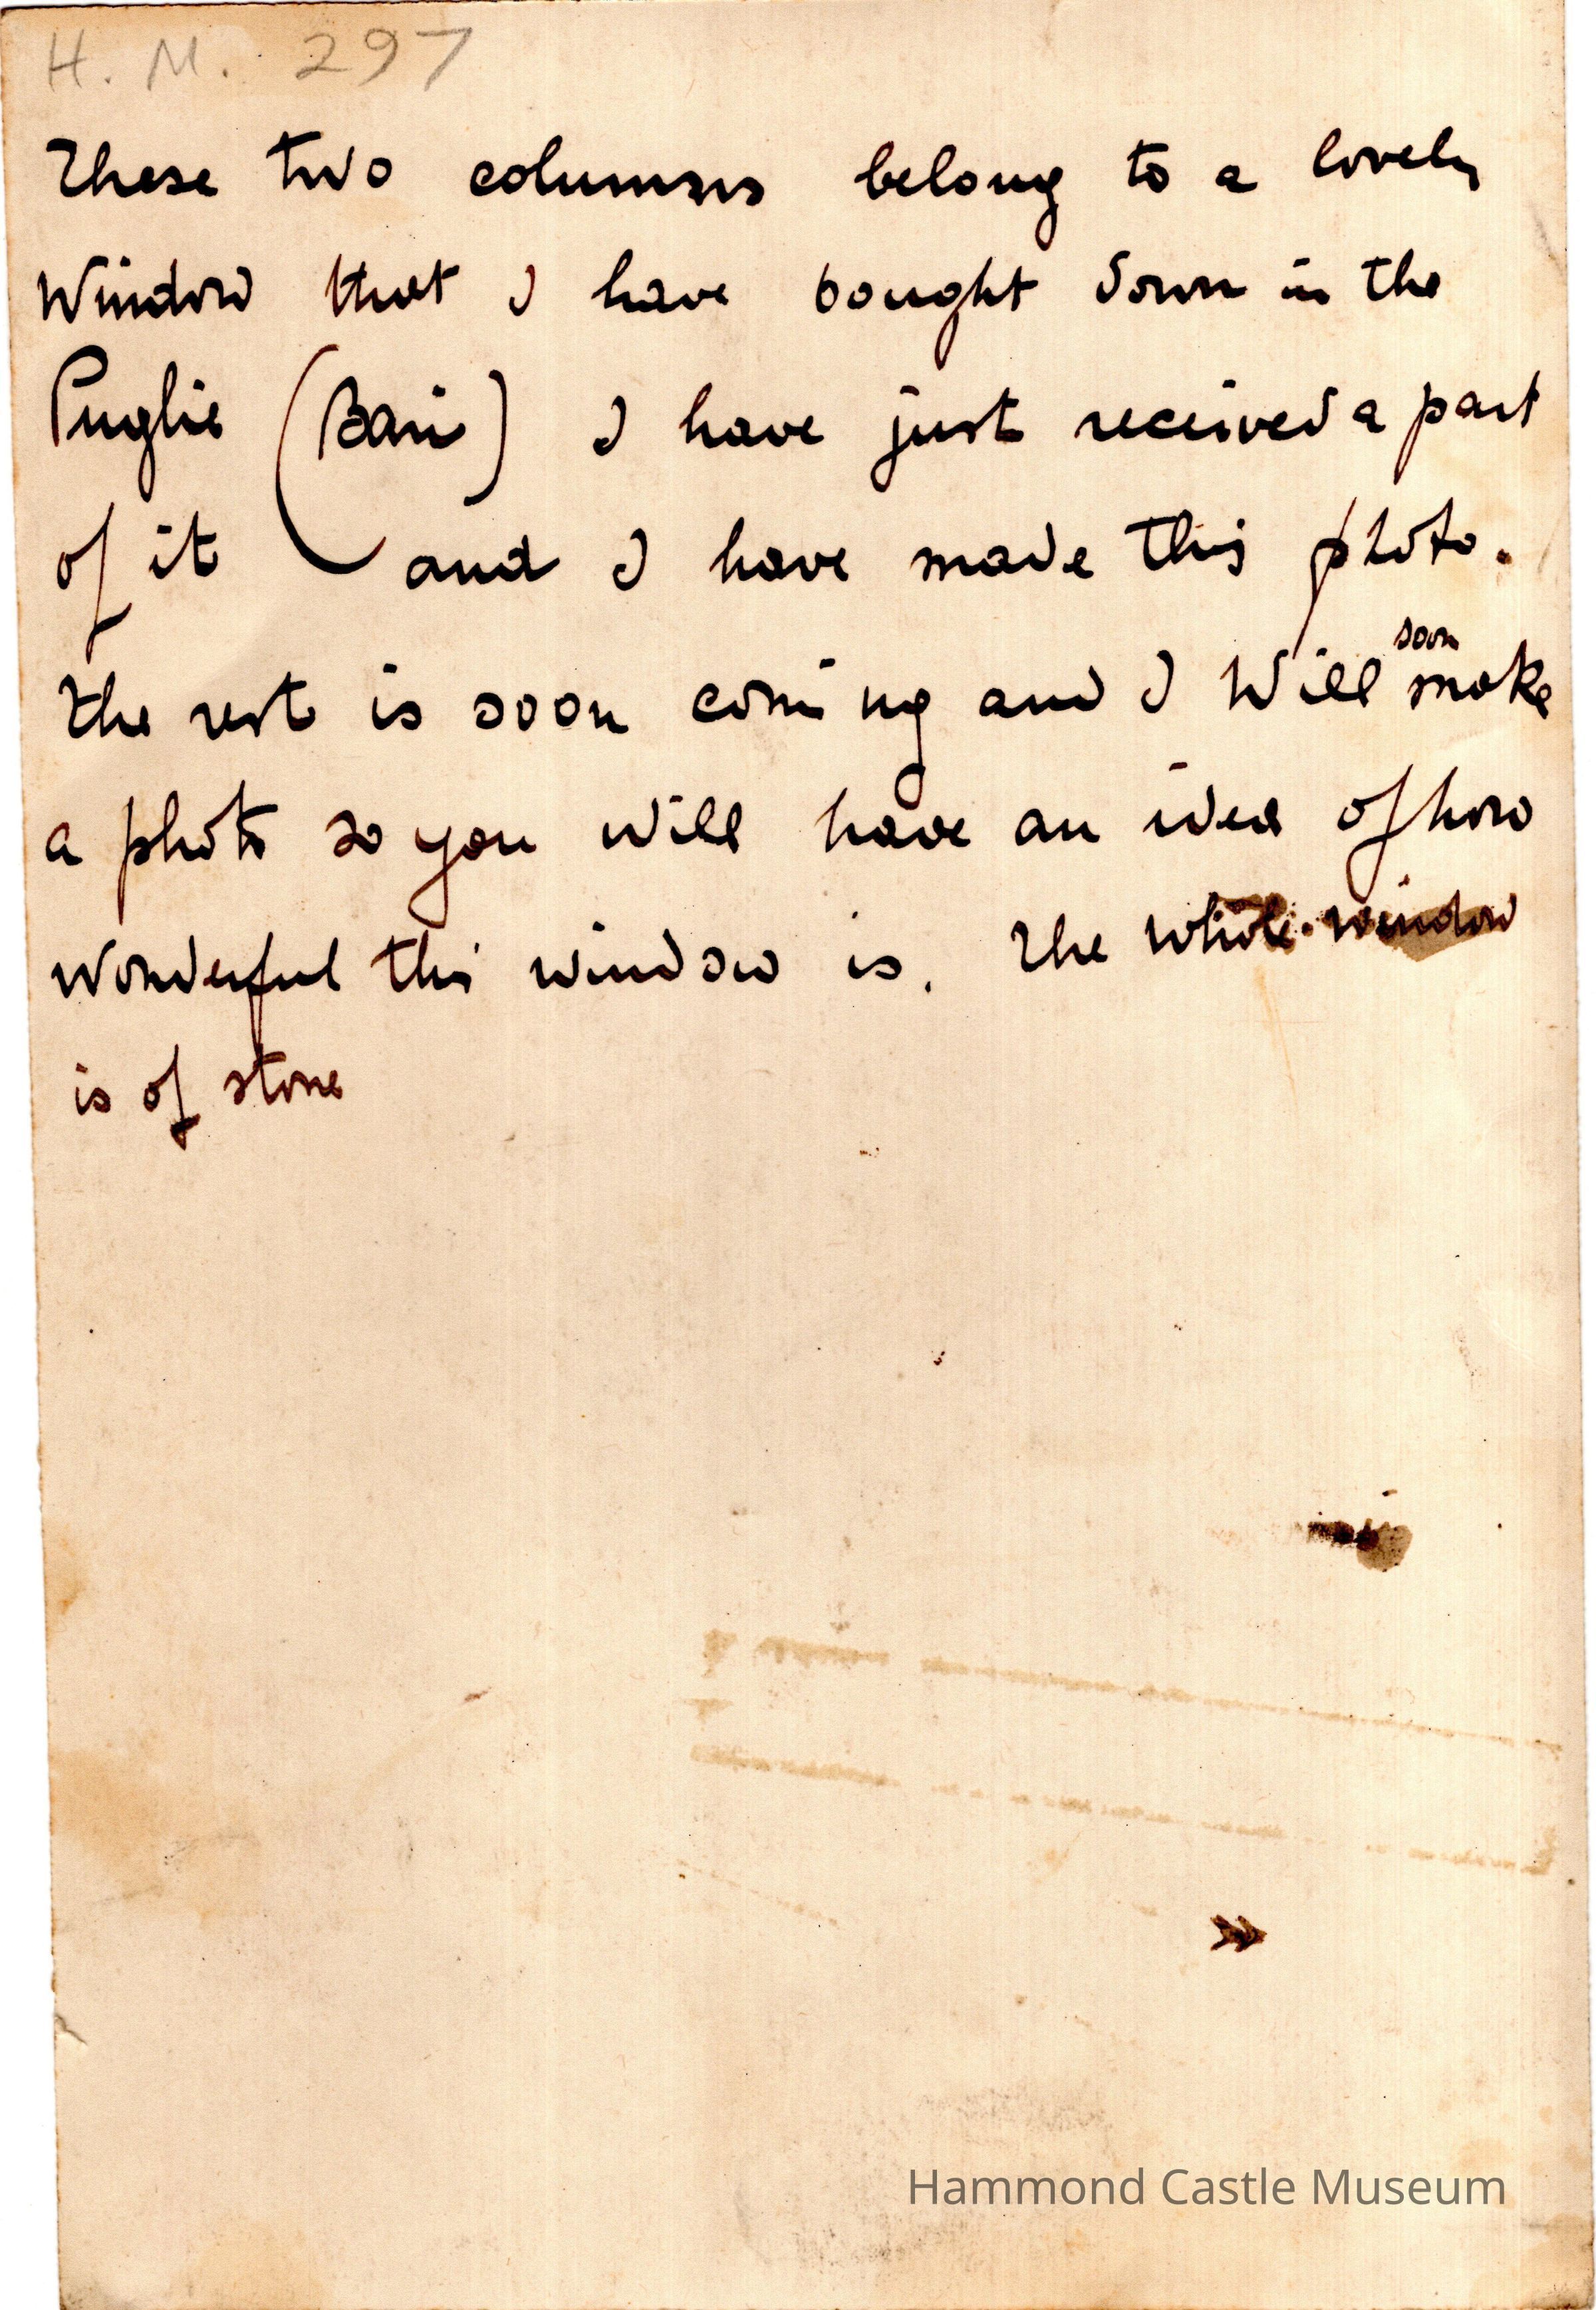 H. M. 297
These two columns belong to a lovely
Window that I have bought down in the
Puglie (Bari) I have just received a part
of it and I have made this photo.
the rest is soon coming and I Will soon make
a photo so you Will have an idea of how
Wonderful this window is. The whole window
is of stone
Hammond Castle Museum